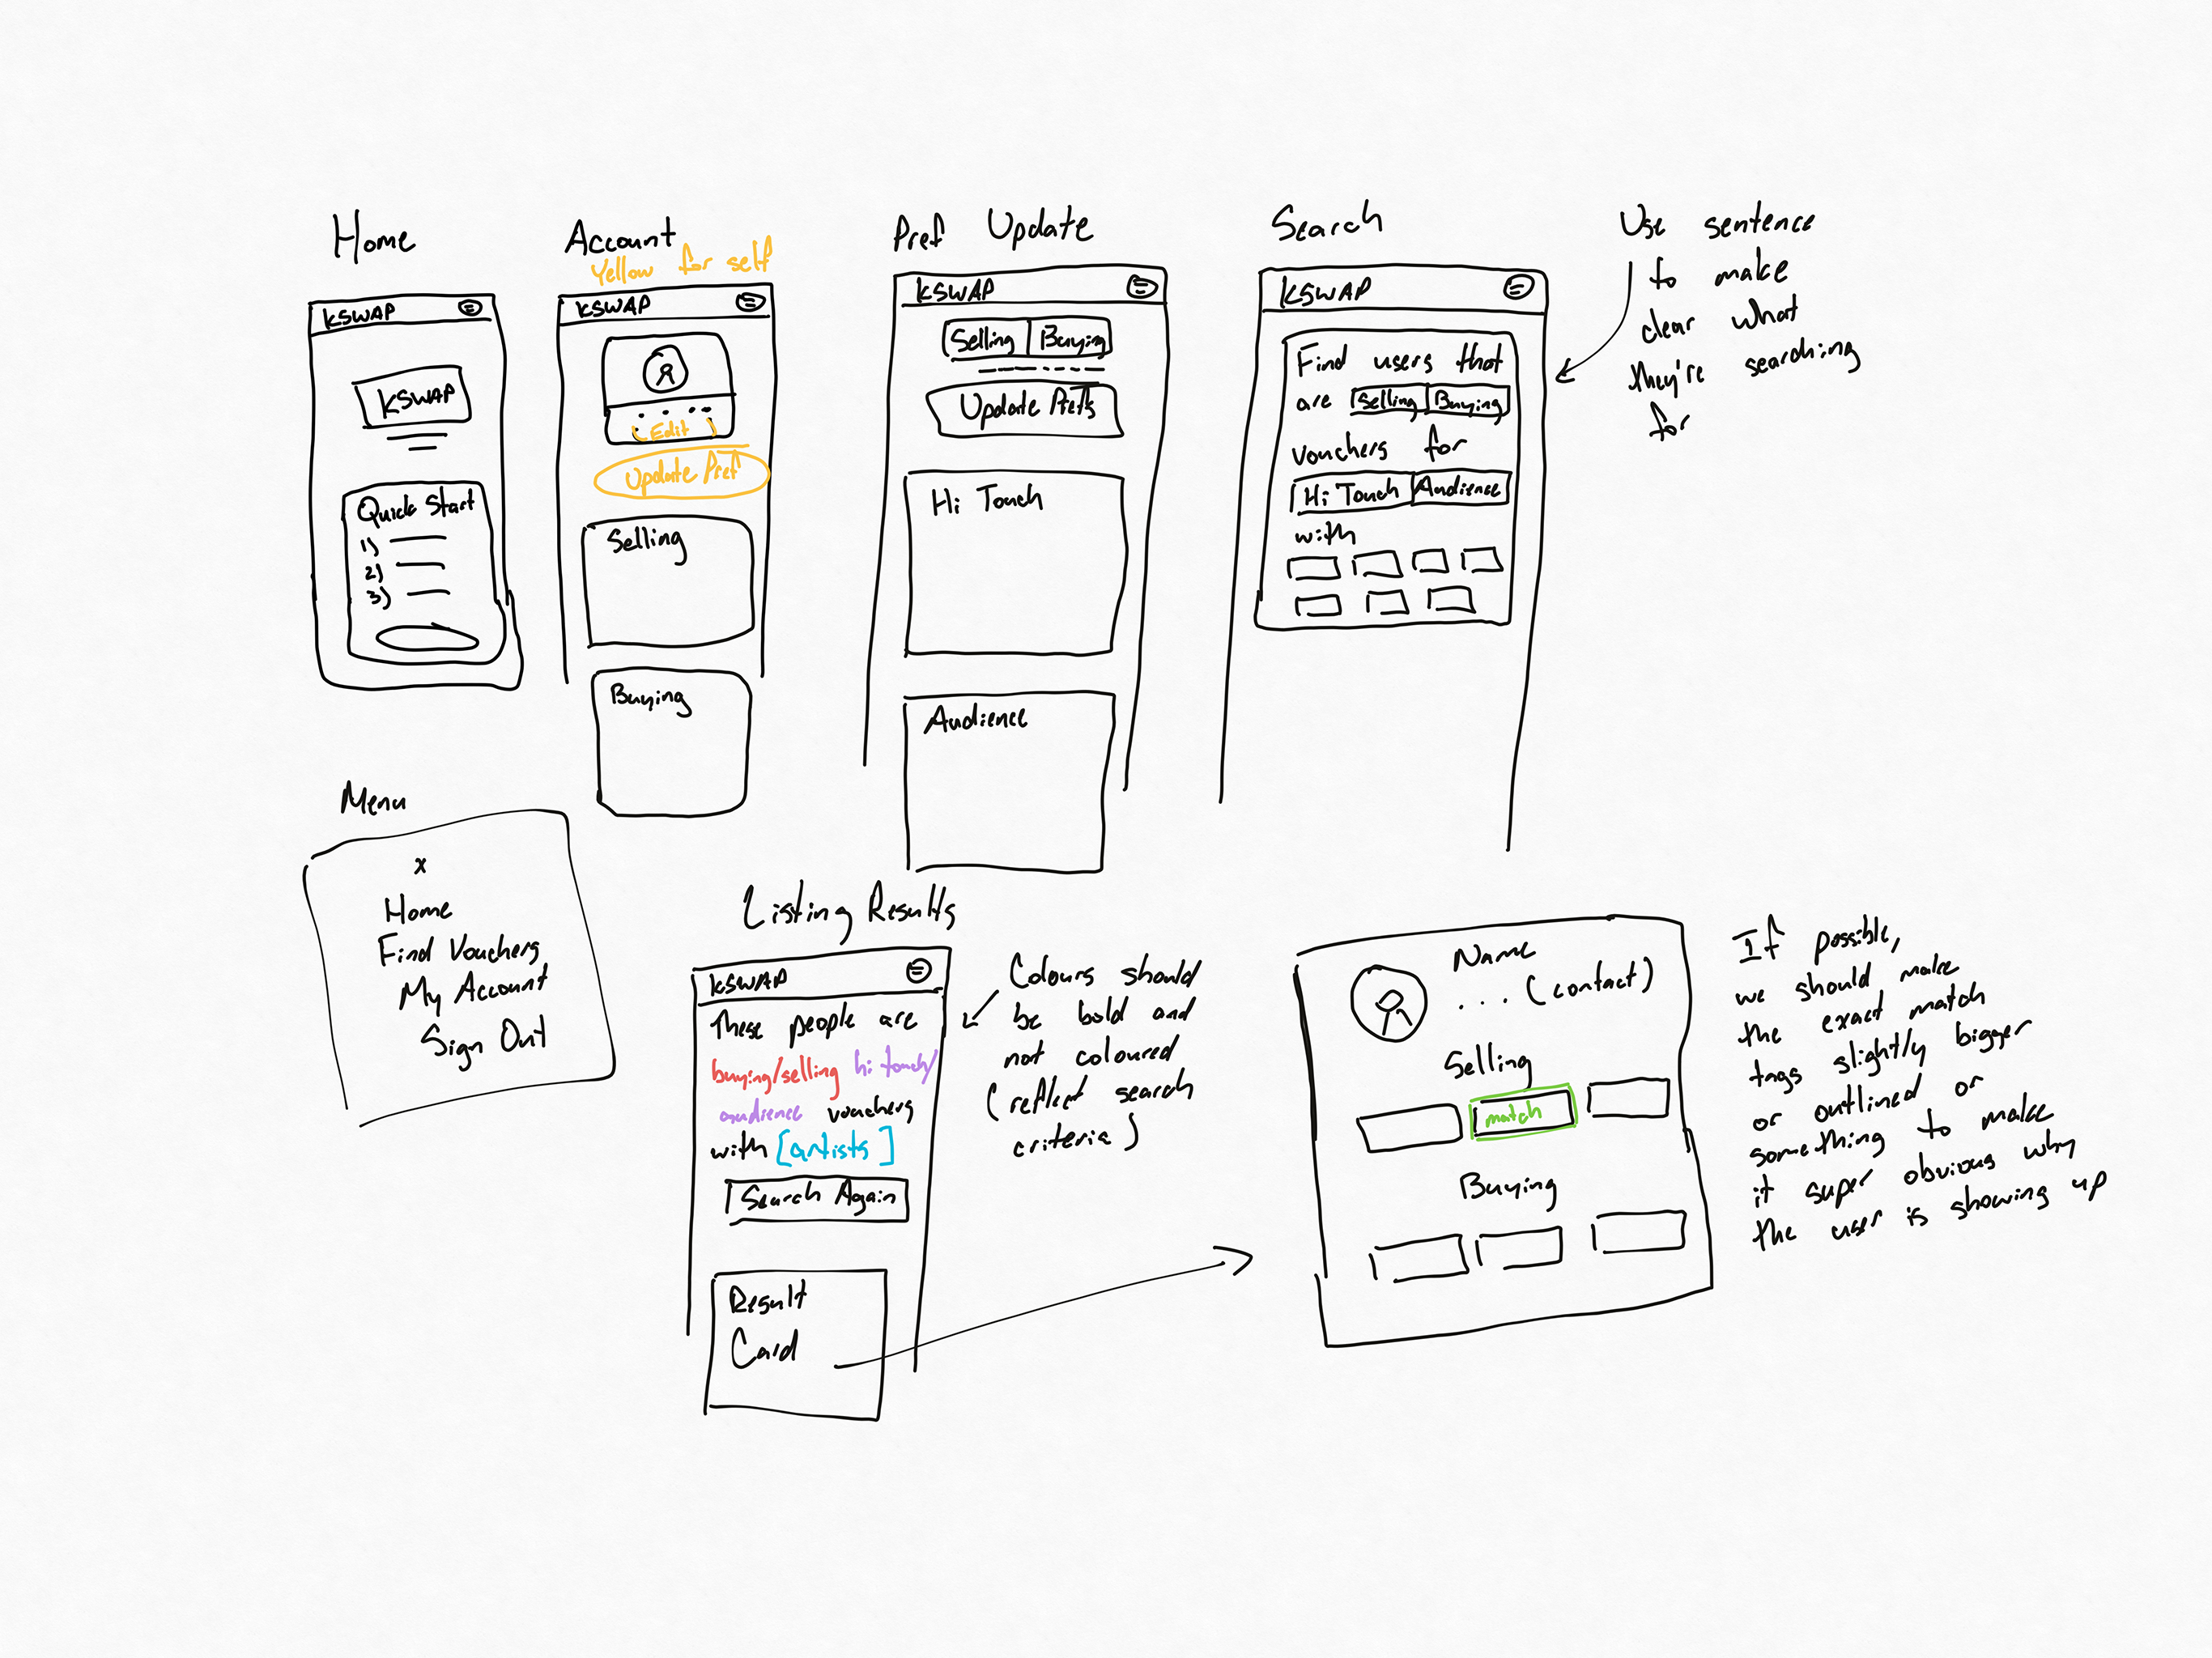 Home
KSWAP
KSWAP
Quick Start
1)
2)
3)
Account
Yellow for self
KSWAP
Edit
Update Pref
Selling
Buying
Pref Update
KSWAP
Selling Buying
Update Prefs
Hi Touch
Audience
Search
KSWAP
Find users that
are Selling Buying
vouchers for
Hi Touch Audience
with
Use sentence
to make
clear what
they're searching
for
Menu
x
Home
Find Vouchers
My Account
Sign Out
Listing Results
KSWAP
These people are
buying/selling hi touch/
audience vouchers
with [artists]
Search Again
Result
Card
Colours should
be bold and
not coloured
(reflect search
criteria)
Name
... (contact)
Selling
match
Buying
If possible,
we should make
the exact match
tags slightly bigger
or outlined or
something to make
it super obvious why
the user is showing up